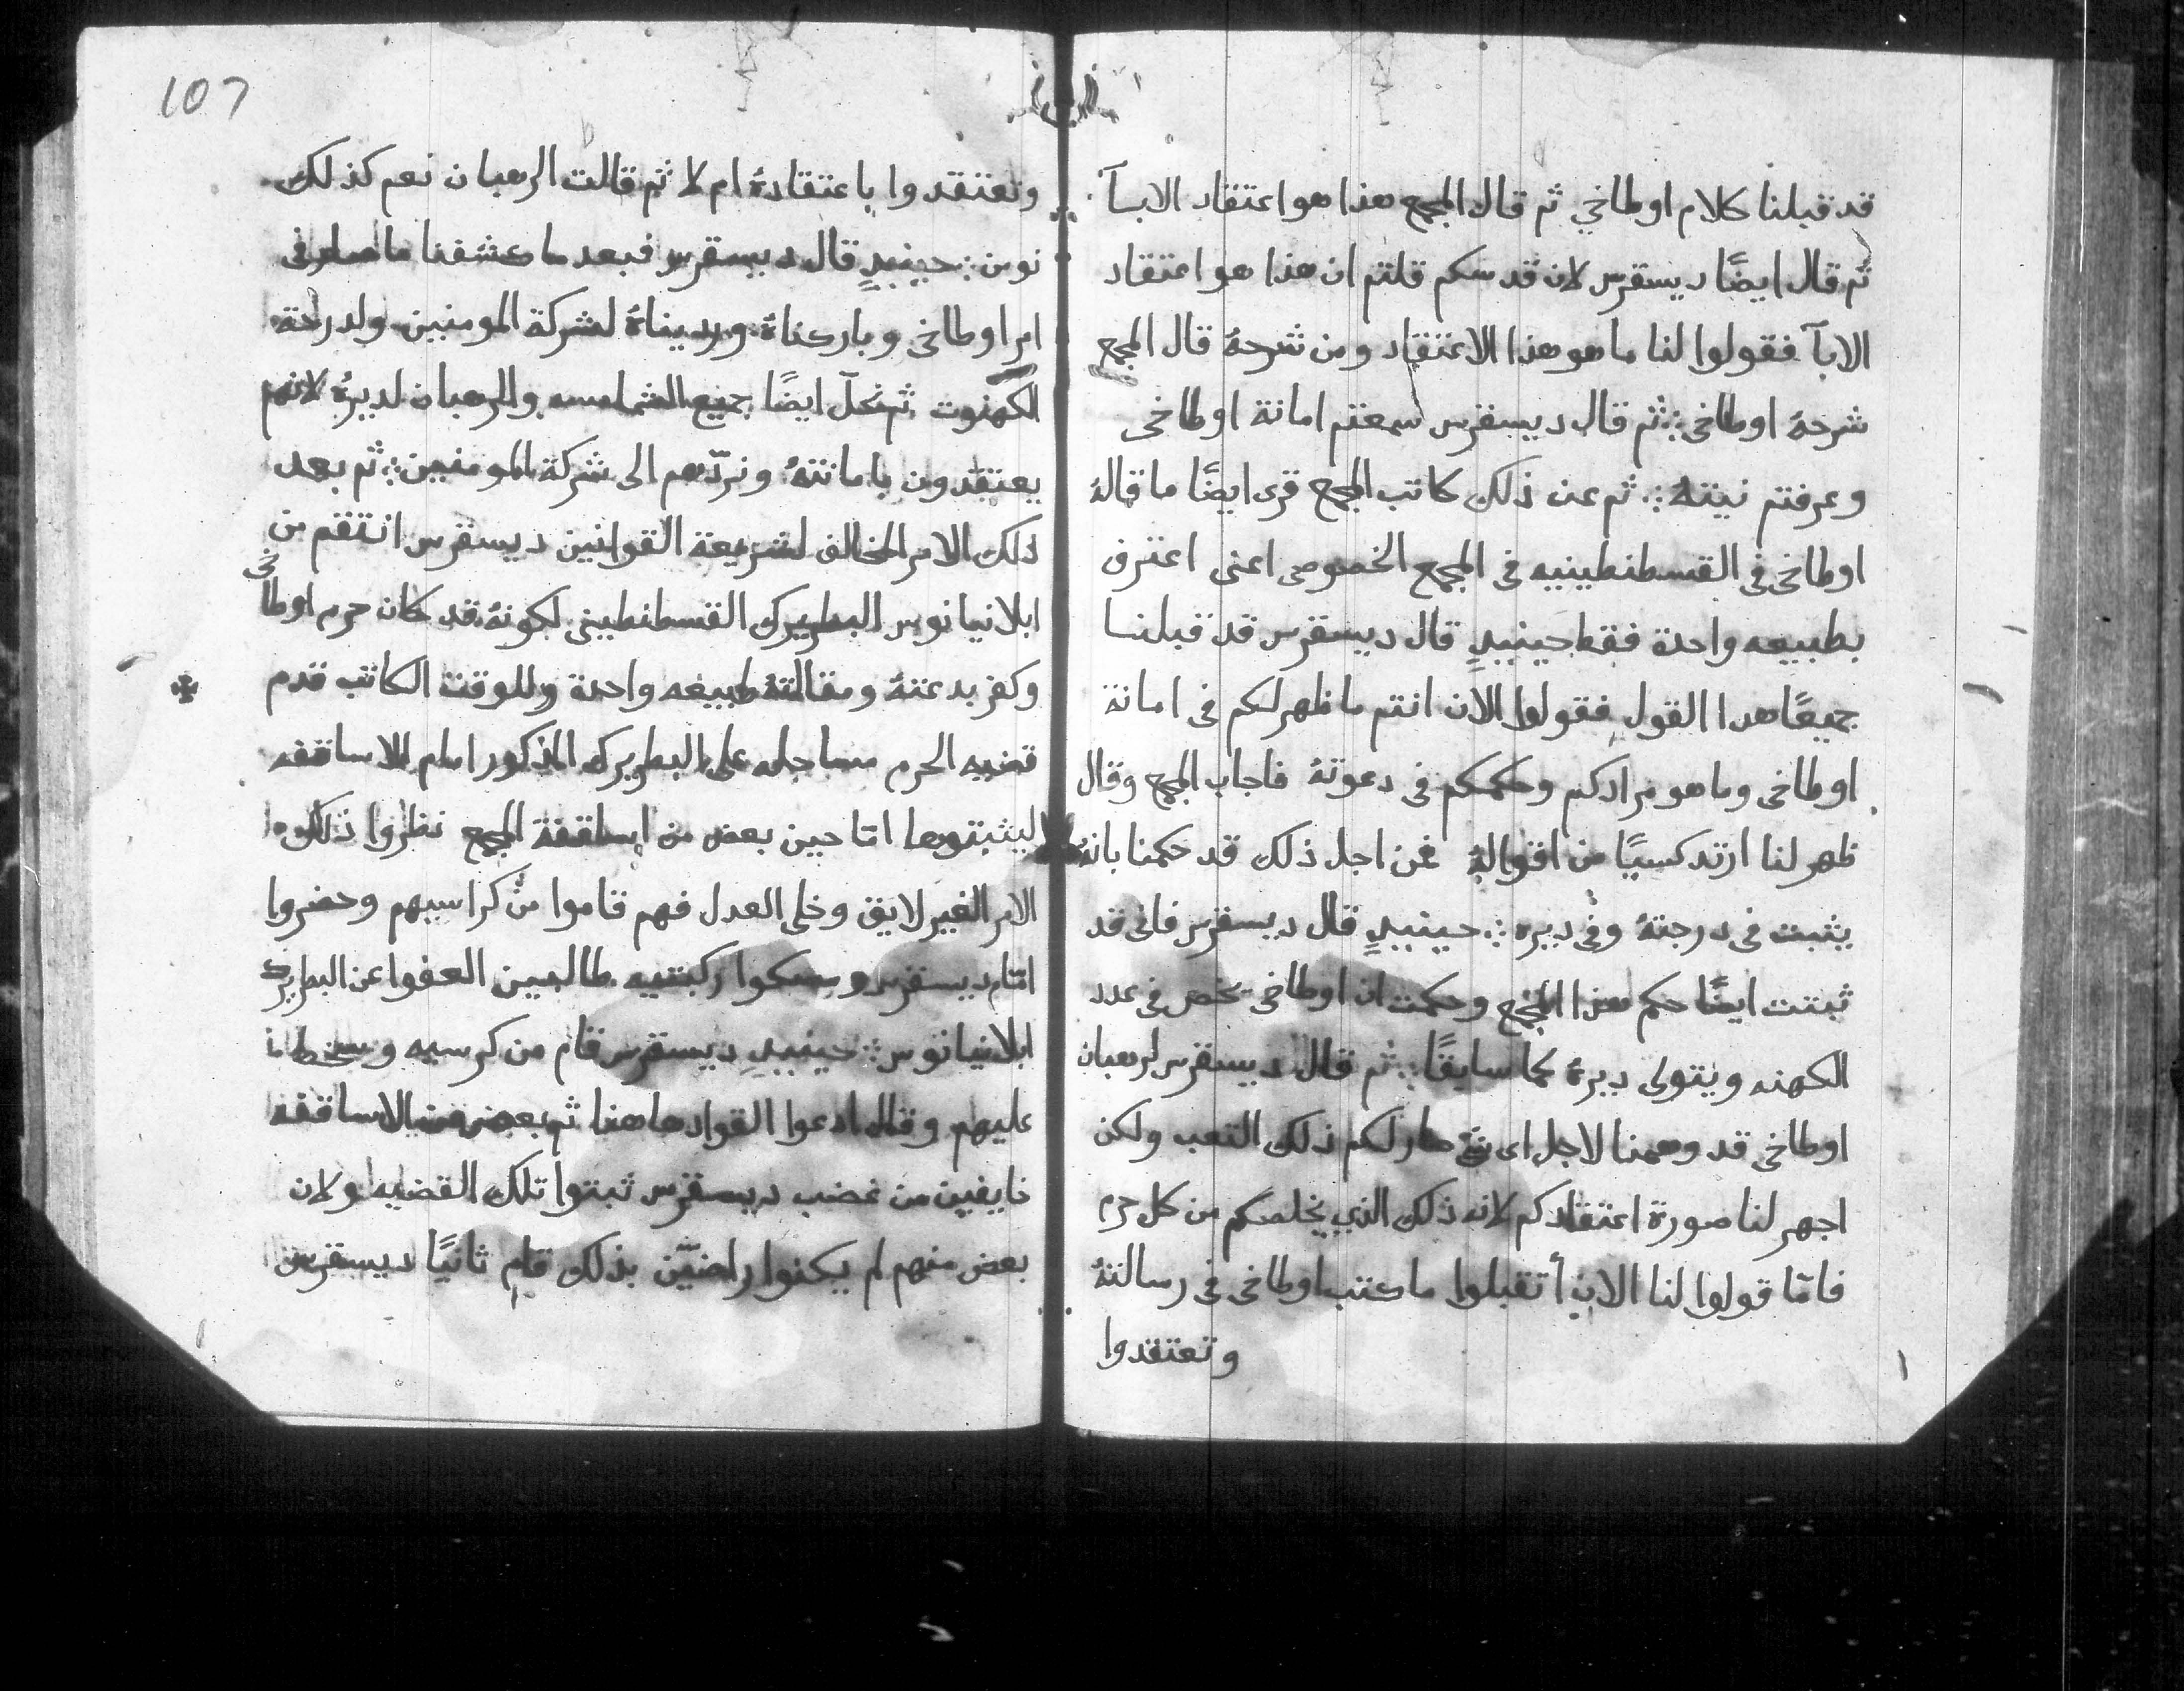 قد قبلنا كلام اوطاخي ثم قال المجمع هذا هو اعتقاد الابآ
ثم قال ايضًا ديسقرس لان قدسكم قلتم ان هذا هو اعتقاد
الابآ فقولوا لنا ما هو هذا الاعتقاد ومن شرحهُ قال المجمع
شرحهُ اوطاخي ثم قال ديسقرس سمعتم امانة اوطاخي
وعرفتم نيتهُ ثم عن ذلك كاتب المجمع قرى ايضًا ما قالهُ
اوطاخي في القسطنطينيه في المجمع الخصوصي اعني اعترف
بطبيعه واحدة فقط حينيدٍ قال ديسقرس قد قبلنا
جميعًا هدا القول فقولوا الان انتم ما ظهر لكم في امانة
اوطاخي وما هو مرادكم وحكمكم في دعوتهُ فاجاب المجمع وقال
ظهر لنا ارتدكسيًا من اقوالهُ فمن اجل ذلك قد حكمنا بانهُ
يثبت في درجتهُ وفي ديره حينيدٍ قال ديسقرس فانى قد
ثبتت ايضًا حكم هذا المجمع وحكمت ان اوطاخي يحص في عدد
الكهنه ويتولى ديرهُ كما سابقًا ثم قال ديسقرس لرهبان
اوطاخي قد وهمنا لاجل اى شئ صار لكم ذلك التعب ولكن
اجهر لنا صورة اعتقادكم لانه ذلك الذي يخلصكم من كل حرم
فامّا قولوا لنا الان أتقبلوا ما كتب اوطاخي في رسالتهُ
وتعتقدوا
107
وتعتقدوا باعتقادهُ ام لا ثم قالت الرهبان نعم كذلك
نومن حينيدٍ قال ديسقرس فبعد ما كشفنا ما صار في
امر اوطاخي وباركناهُ ورديناهُ لشركة المومنين ولدرجة
الكهنوت ثم نحلّ ايضًا جميع الشمامسه والرهبان لديرهُ لانهم
يعتقدون بامانتهُ ونردّهم الى شركة المومنين ثم بعد
ذلك الامر المخالف لشريعة القوانين ديسقرس انتقم من
ابلانيانوس البطريرك القسطنطيني لكونهُ قد كان حرم اوطاخي
وكفر بدعتهُ ومقالتهُ طبيعه واحدة وللوقت الكاتب قدم
قضيه الحرم مساجله على البطريرك المذكور امام الاساقفه
ليثبتوها امّا حين بعض من اساقفة المجمع نظروا ذلك
الامر الغير لايق وخلى العدل فهم قاموا من كراسيهم وحضروا
امّام ديسقرس ومسكوا ركبتيه طالبين العفوا عن البطريرك
ابلانيانوس حينيدٍ ديسقرس قام من كرسيه وسخط
عليهم وقال ادعوا القواد هاهنا ثم بعض من الاساقفه
خايفين من غضب ديسقرس ثبتوا تلك القضيه ولان
بعض منهم لم يكنوا راضيّن بذلك قام ثانيًا ديسقرس